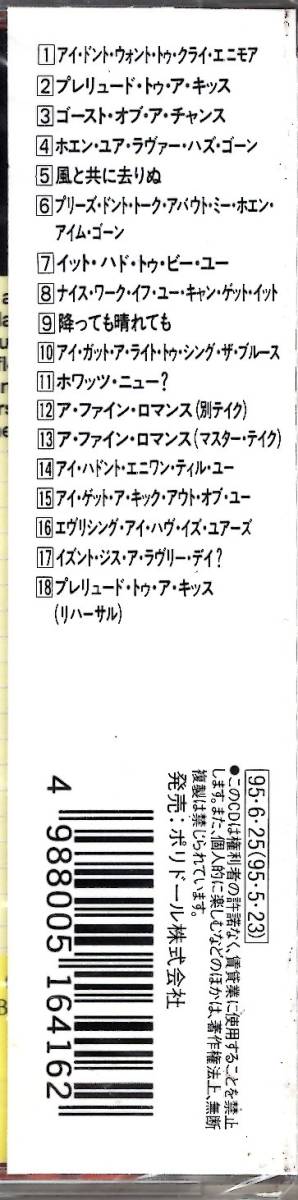 1 アイ・ドント・ウォント・トゥ・クライ・エニモア
2 プレリュード・トゥ・ア・キッス
3 ゴースト・オブ・ア・チャンス
4 ホエン・ユア・ラヴァー・ハズ・ゴーン
5 風と共に去りぬ
6 プリーズ・ドント・トーク・アバウト・ミー・ホエン・
アイム・ゴーン
7 イット・ハド・トゥ・ビー・ユー
8 ナイス・ワーク・イフ・ユー・キャン・ゲット・イット
9 降っても晴れても
10 アイ・ガット・ア・ライト・トゥ・シング・ザ・ブルース
11 ホワッツ・ニュー?
12 ア・ファイン・ロマンス(別テイク)
13 ア・ファイン・ロマンス(マスター・テイク)
14 アイ・ハドント・エニワン・ティル・ユー
15 アイ・ゲット・ア・キック・アウト・オブ・ユー
16 エヴリシング・アイ・ハヴ・イズ・ユアーズ
17 イズント・ジス・ア・ラヴリー・デイ?
18 プレリュード・トゥ・ア・キッス
(リハーサル)
95・6・25(95・5・23)
●このCDは権利者の許諾なく、賃貸業に使用することを禁止
します。また、個人的に楽しむなどのほかは、著作権法上、無断
複製は禁じられています。
発売:ポリドール株式会社
4 988005 164162